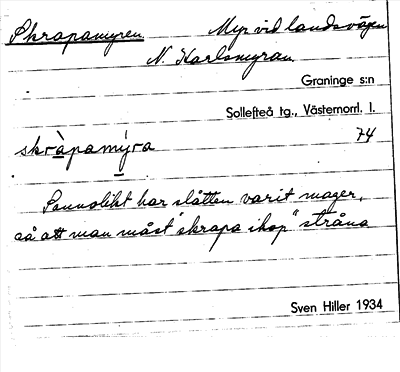 Skrapamyren. Myr vid landsvägen
N. Karlsmyran.
Graninge s:n
Sollefteå tg., Västernorrl. l.
skràpamýra 74
Sannolikt har slåtten varit mager,
så att man måst "skrapa ihop" stråna
Sven Hiller 1934